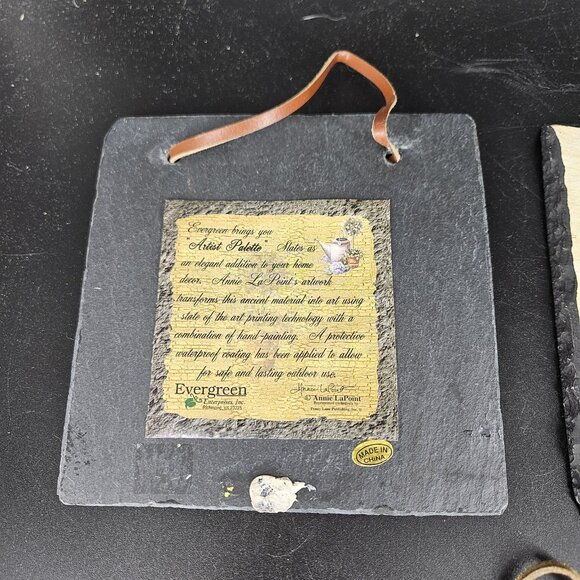 Evergreen brings you
"Artist Palette" Slates as
an elegant addition to your home
decor. Annie LaPoint's artwork
transforms this ancient material into art using
state of the art printing technology with a
combination of hand-painting. A protective
waterproof coating has been applied to allow
for safe and lasting outdoor use.
Evergreen
Enterprises, Inc.
Richmond, VA 23225
Annie LaPoint
© Annie LaPoint
Penny Lane Publishing, Inc. ®
MADE IN
CHINA